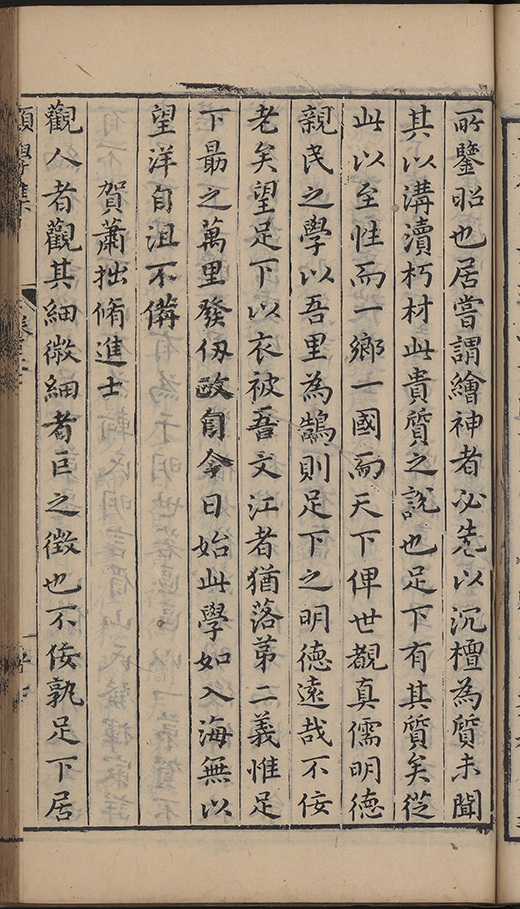 所鑒昭也居嘗謂繪神者必先以沉檀為質未聞
其以溝瀆朽材此貴質之說也足下有其質矣從
此以至性而一鄉一國而天下俾世覩真儒明德
親民之學以吾里為鵠則足下之明德遠哉不佞
老矣望足下以衣被吾文江者猶落第二義惟足
下勗之萬里發仞政自今日始此學如入海無以
望洋自沮不備
賀蕭拙脩進士
觀人者觀其細微細者巨之徵也不佞孰足下居
願學集